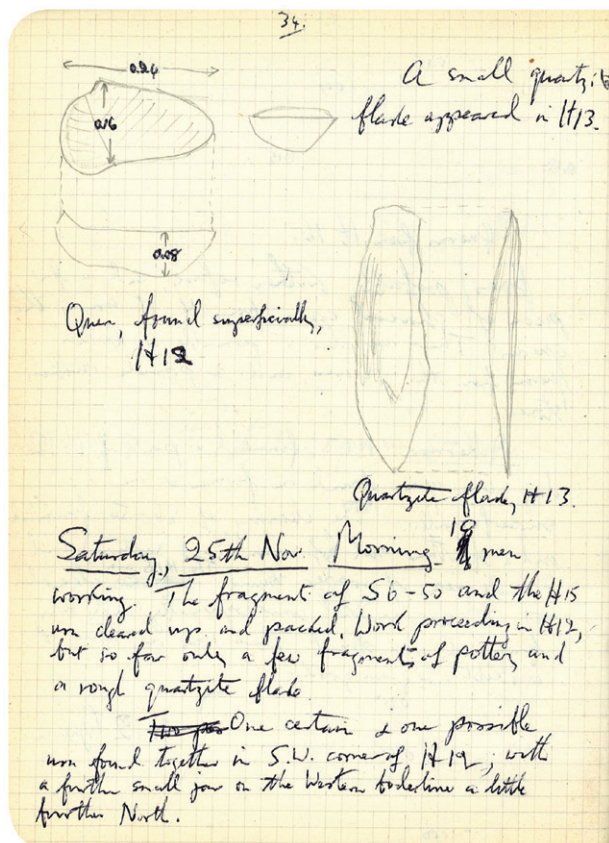 34.
0.24
A small quartzite
flake appeared in H13.
0.16
0.08
Quern, found superficially,
H12
Quartzite flake, H13.
Saturday, 25th Nov. Morning. 19 men
working. The fragment of S6-50 and the H15
urn cleared up and packed. Work proceeding in H12,
but so far only a few fragments of pottery and
a rough quartzite flake
One certain & one possible
urn found together in S.W. corner of H12; with
a further small jar on the Western borderline a little
further North.